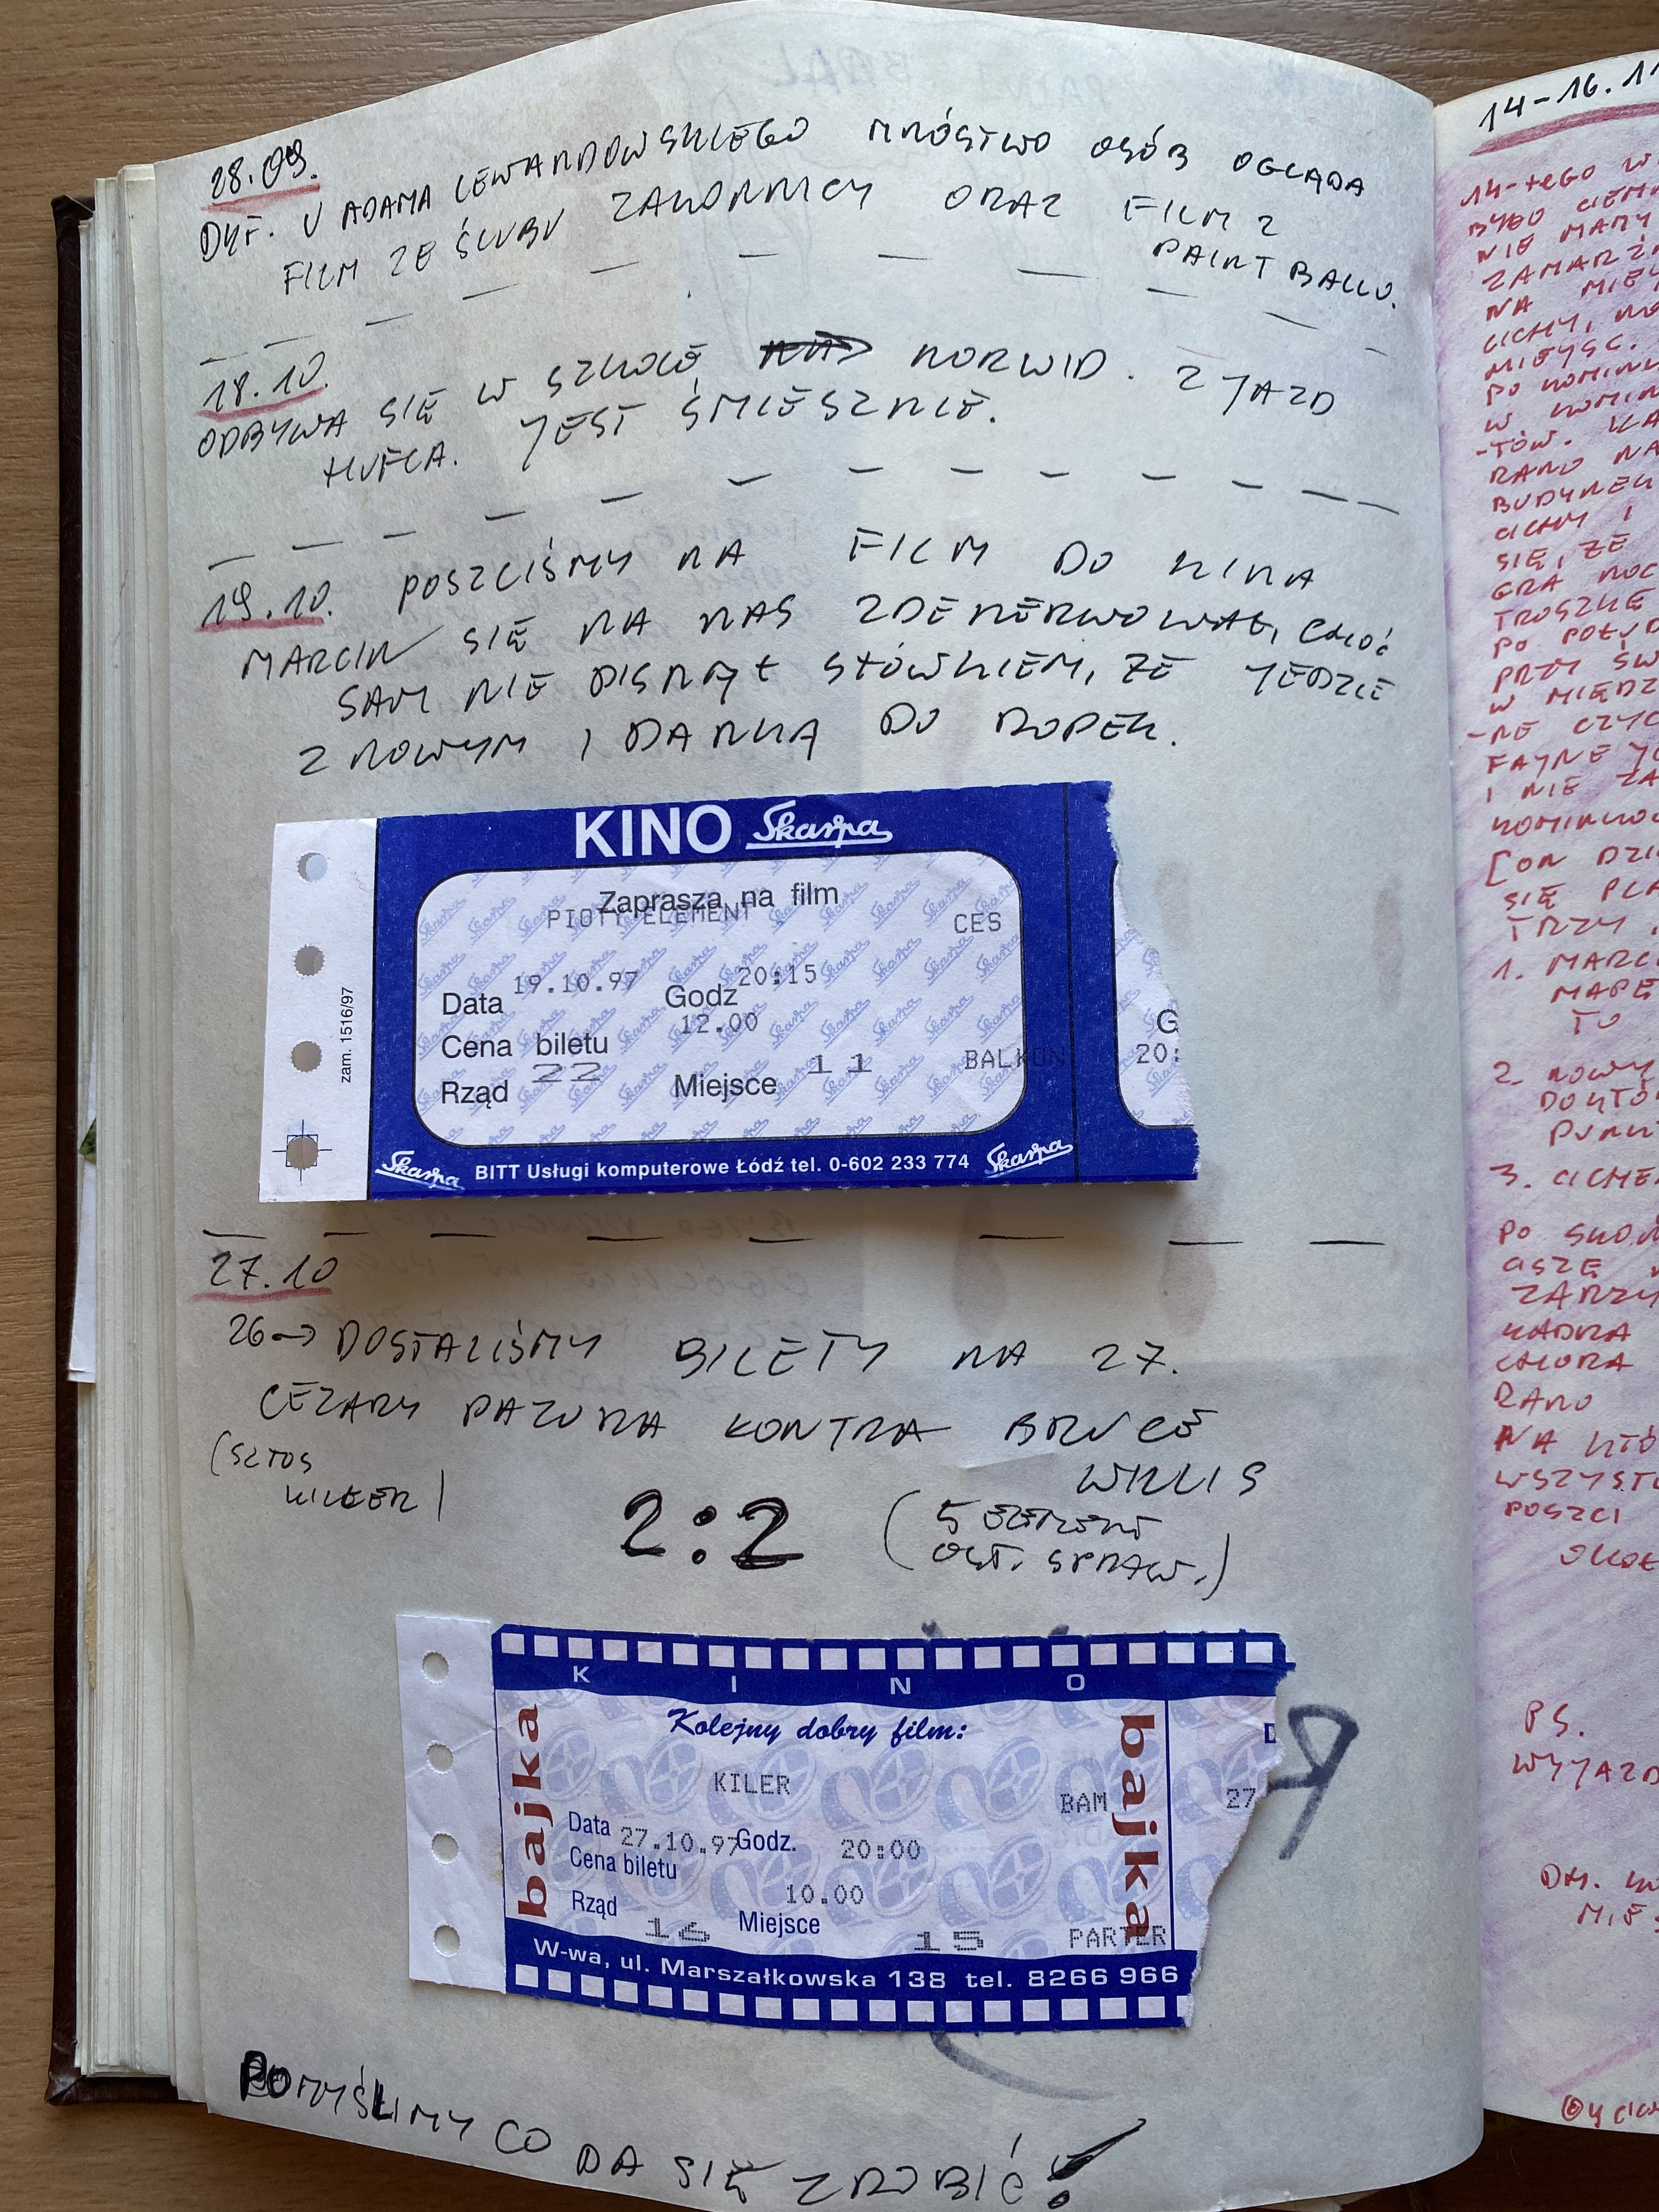 28.09.
DYF. U ADAMA LEWANDOWSKIEGO MNÓSTWO OSÓB OGLĄDA
FILM ZE ŚLUBU ZAKONNICY ORAZ FILM Z
PAINT BALLU.
18.10.
ODBYWA SIĘ W SZKOLE NORWID. ZJAZD
HUFCA. JEST ŚMIESZNIE.
19.10. POSZLIŚMY NA FILM DO KINA
MARCIN SIĘ NA NAS ZDENERWOWAŁ, CHOĆ
SAM NIE PISNĄŁ SŁÓWKIEM, ŻE JEDZIE
Z NOWYM I DANKĄ DO ROPEK.
KINO Skarpa
Zaprasza na film
PIĄTY ELEMENT CES
Data 19.10.97 Godz 20:15
Cena biletu 12.00
Rząd 22 Miejsce 11 BALKON
G
20:
zam. 1516/97
Skarpa BITT Usługi komputerowe Łódź tel. 0-602 233 774 Skarpa
27.10
26→ DOSTALIŚMY BILETY NA 27.
CEZARY PAZURA KONTRA BRUCE
WILLIS
(SZTOS
KILLER)
2:2
(5 ELEMENT
OST. SPRAW.)
KINO
bajka
Kolejny dobry film:
KILER
BAM
bajka
27
Data 27.10.97 Godz. 20:00
Cena biletu 10.00
Rząd 16 Miejsce 15 PARTER
W-wa, ul. Marszałkowska 138 tel. 8266 966
POMYŚLIMY CO DA SIĘ ZROBIĆ!
14-16.11
14-tego W
BYŁO CIEM
NIE MAMY
ZAMARZ
NA MIEJ
CICHY, NO
MIEJSC.
PO KOMINK
W KOMIN
-TÓW. KA
RANO NA
BUDYNEK
CICHY I
SIĘ, ŻE
GRA NOC
TROSZKĘ
PO POŁUD
PRZY ŚW
W MIĘDZ
-NE CZYC
FAJNE JE
I NIE ZA
KOMINKO
[ON DZI
SIĘ PLA
TRZY
1. MARC
MAPĘ
TO
2. NOWY
DOKTO
PUNK
3. CICHE
PO SKOŃ
CISZĘ
ZARZY
KADRA
CHORA
RANO
NA KTÓ
WSZYST
POSZLI
OKOŁ
PS.
WYJAZD
DH.
MIE